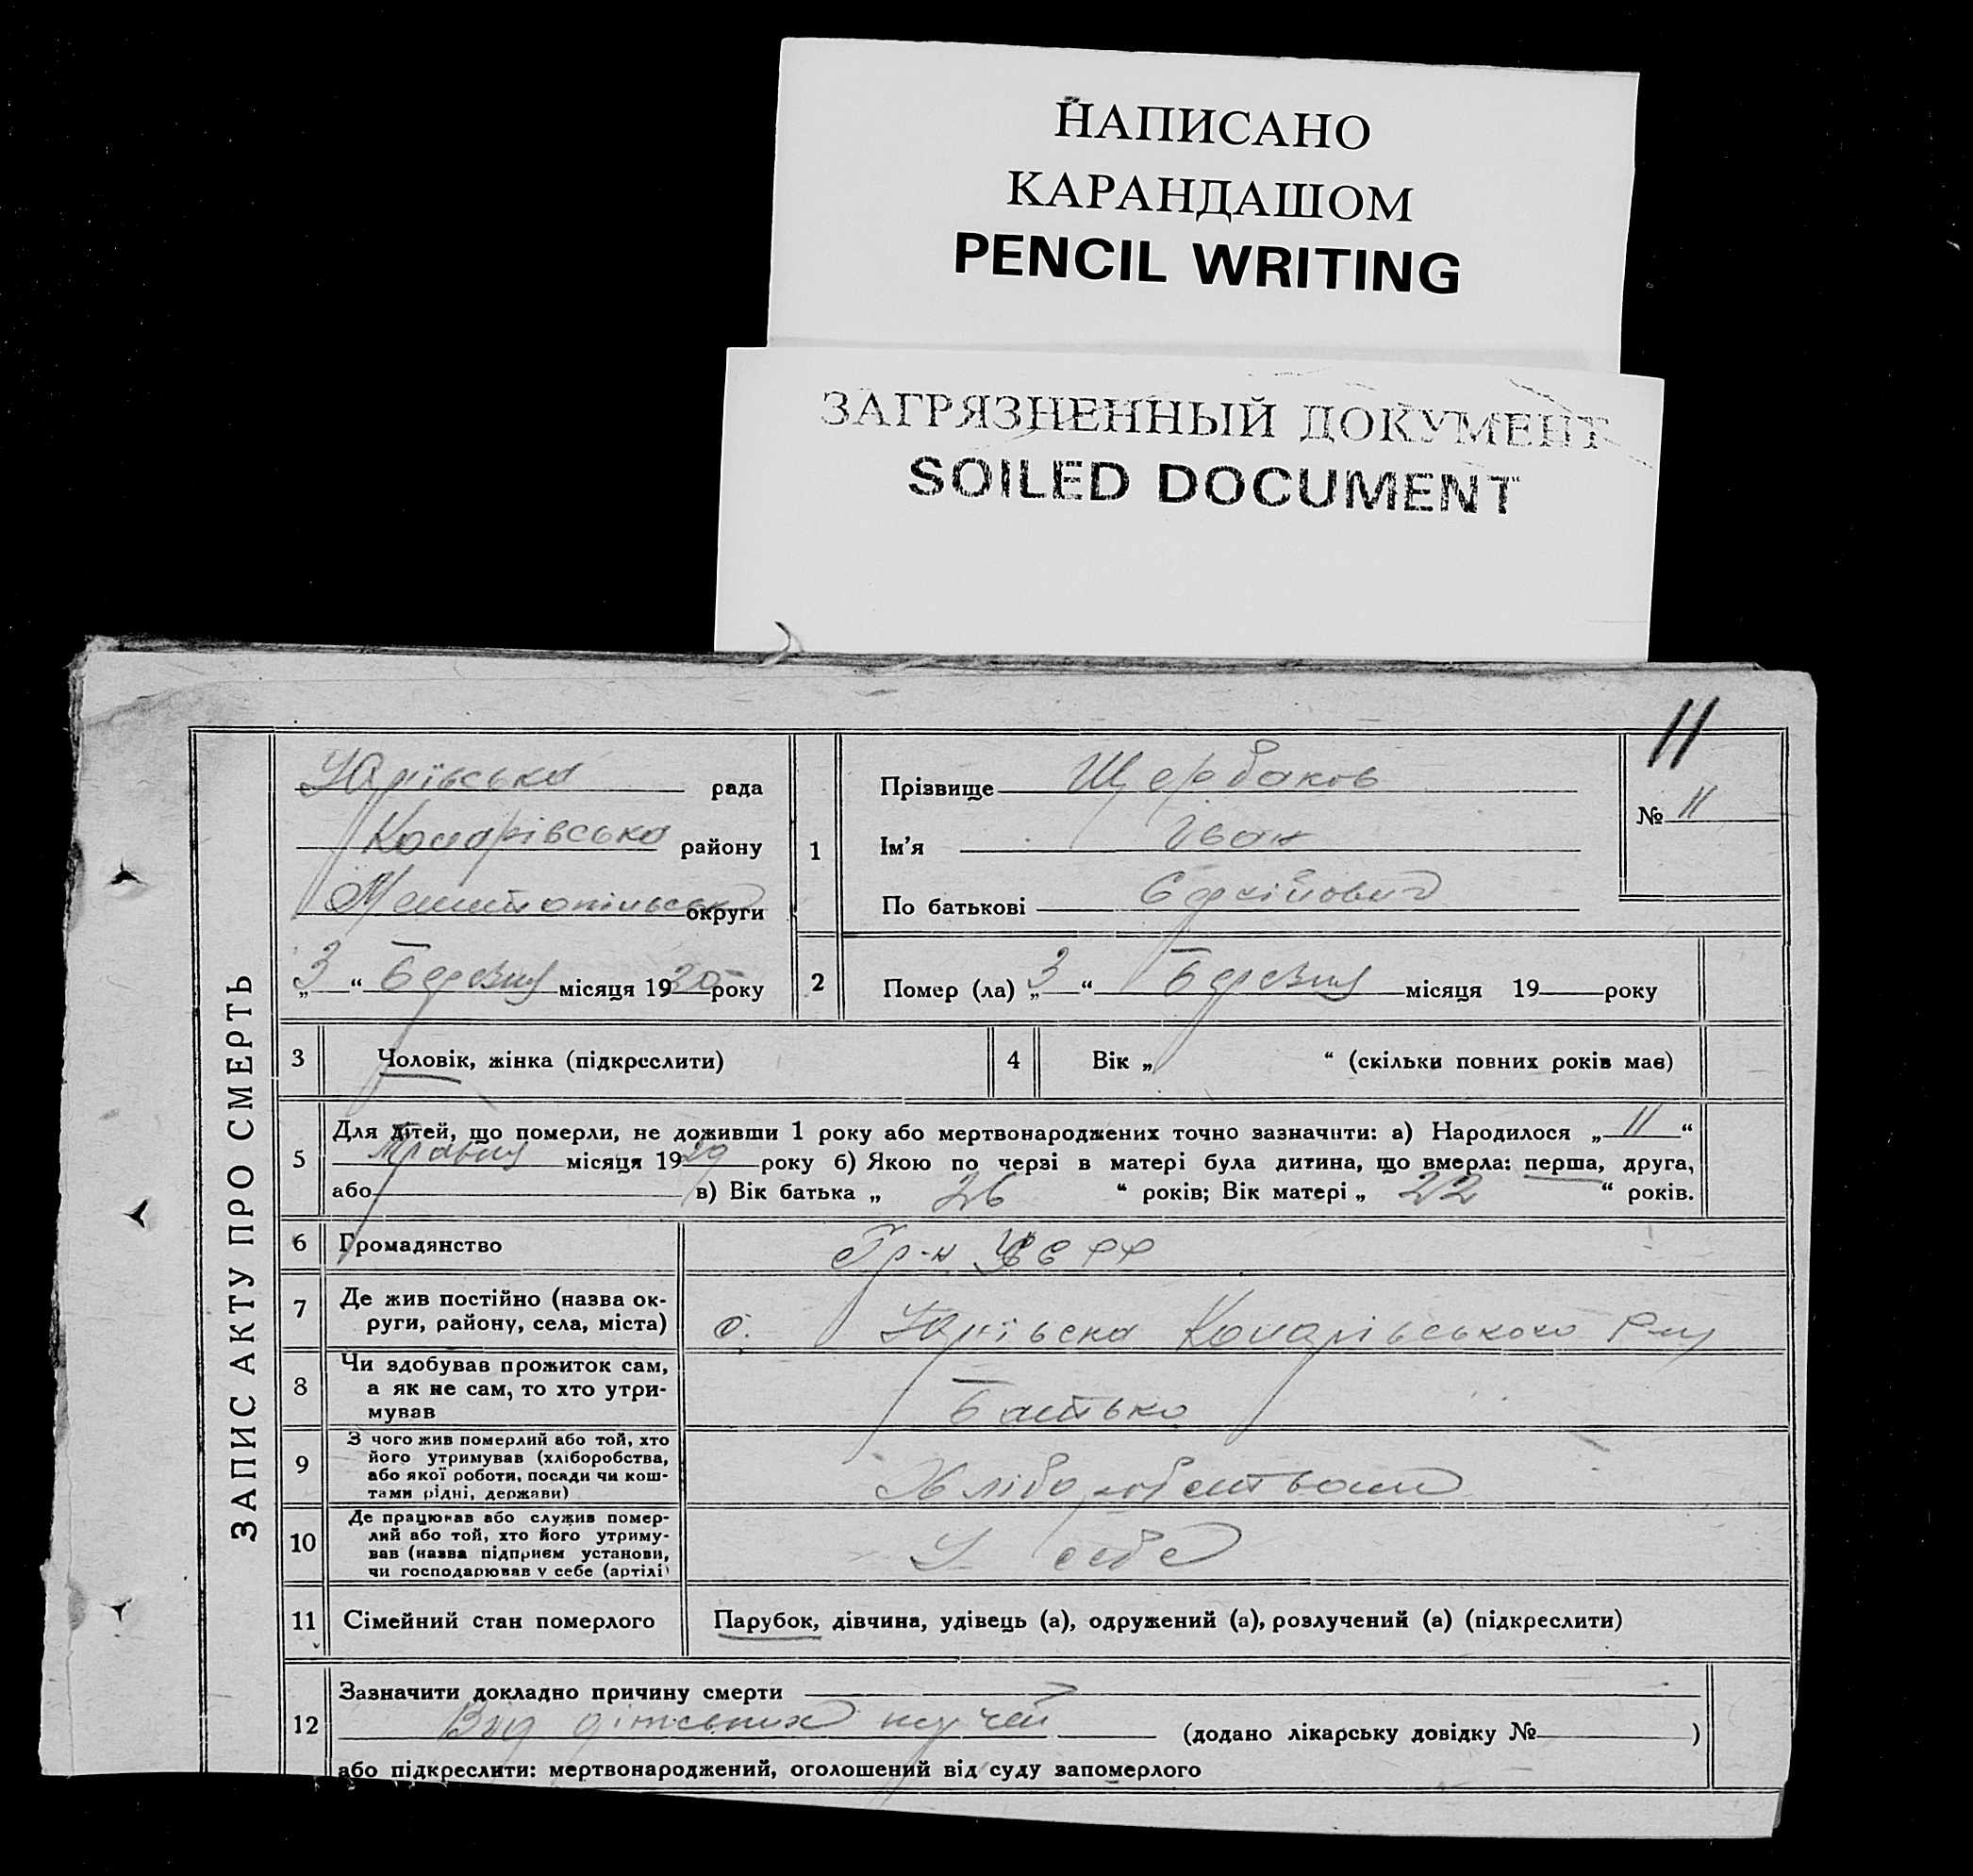 НАПИСАНО
КАРАНДАШОМ
PENCIL WRITING
ЗАГРЯЗНЕННЫЙ ДОКУМЕНТ
SOILED DOCUMENT
11
ЗАПИС АКТУ ПРО СМЕРТЬ
рада
району
округи
„3“ Березня місяця 1930 року
1
Прізвище Щербаков
Ім’я Іван
По батькові
№ 11
2
Помер (ла) „3“ Березня місяця 19 року
3 Чоловік, жінка (підкреслити)
4 Вік „ “ (скільки повних років має)
5 Для дітей, що померли, не доживши 1 року або мертвонароджених точно зазначити: а) Народилося „11“
Травня місяця 1929 року б) Якою по черзі в матері була дитина, що вмерла: перша, друга,
або в) Вік батька „26“ років; Вік матері „22“ років.
6 Громадянство Гр-н УСРР
7 Де жив постійно (назва ок-
руги, району, села, міста) с.
8 Чи здобував прожиток сам,
а як не сам, то хто утри-
мував Батько
9 З чого жив померлий або той, хто
його утримував (хліборобства,
або якої роботи, посади чи кош-
тами рідні, держави) Хліборобством
10 Де працював або служив помер-
лий або той, хто його утриму-
вав (назва підприєм установи,
чи господарював у себе (артілі) У себе
11 Сімейний стан померлого Парубок, дівчина, удівець (а), одружений (а), розлучений (а) (підкреслити)
12 Зазначити докладно причину смерти
Від дітських (додано лікарську довідку № )
або підкреслити: мертвонароджений, оголошений від суду запомерлого